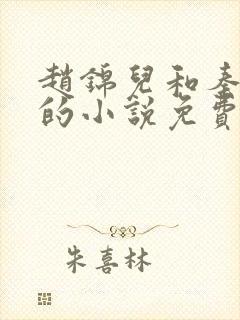 趙錦兒和秦
的小說免費
朱喜林